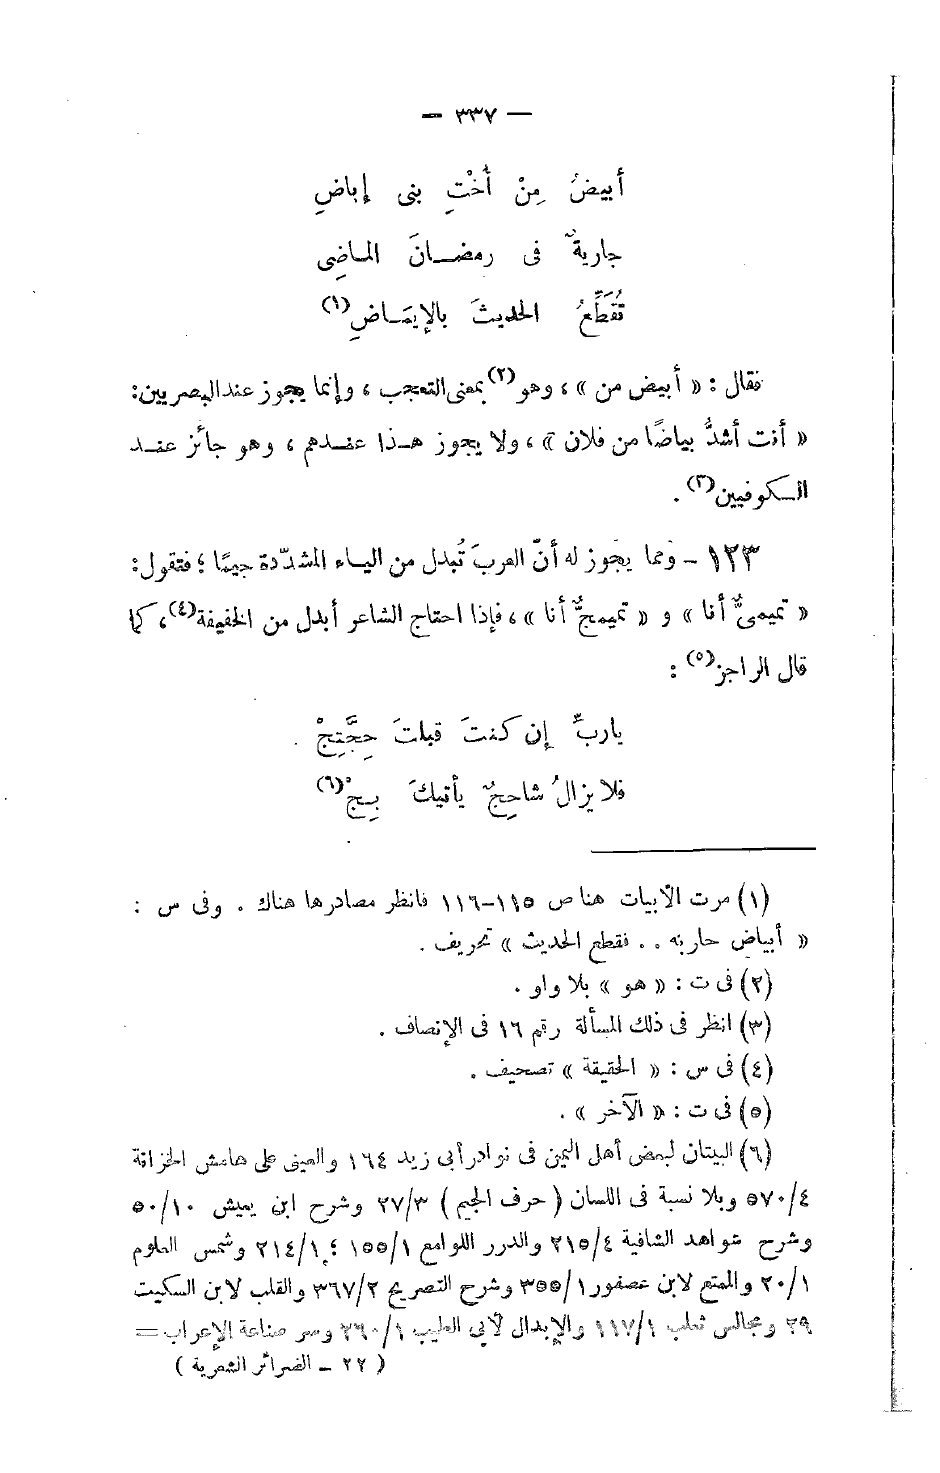 — ٣٣٧ —
أبيضُ مِنْ أُخْتِ بنى إباضِ
جاريةٌ فى رمضــانَ المـاضِى
تُقَطِّعُ الحديثَ بالإيمَـاضِ(١)
فقال : « أبيض من » ، وهو(٢) بمعنى التعجب ، وإنما يجوز عند البصريين :
« أنت أشدُّ بياضًا من فلان » ، ولا يجوز هـذا عنـدهم ، وهو جائز عنـد
الـكوفيين(٣) .
١٢٣ – ومما يجوز له أنّ العربَ تُبدل من الياء المشدّدة جيمًا ؛ فتقول :
« تميمىٌّ أنا » و « تميمجٌّ أنا » ، فإذا احتاج الشاعر أبدل من الخفيفة(٤) ، كما
قال الراجز(٥) :
ياربِّ إن كنتَ قبلتَ حِجَّتِجْ
فلا يزالُ شاحِجٌ يأتيكَ بِجْ(٦)
(١) مرت الأبيات هنا ص ١١٥–١١٦ فانظر مصادرها هناك . وفى س :
« أبياض حاربه . . فقطع الحديث » تحريف .
(٢) فى ت : « هو » بلا واو .
(٣) انظر فى ذلك المسألة رقم ١٦ فى الإنصاف .
(٤) فى س : « الحقيقة » تصحيف .
(٥) فى ت : « الآخر » .
(٦) البيتان لبعض أهل اليمن فى نوادر أبى زيد ١٦٤ والعينى على هامش الخزانة
٤/٥٧٠ وبلا نسبة فى اللسان ( حرف الجيم ) ٣/٢٧ وشرح ابن يعيش ١٠/٥٠
وشرح شواهد الشافية ٤/٢١٥ والدرر اللوامع ١/١٥٥ ؛ ١/٢١٤ وشمس العلوم
١/٢٠ والممتع لابن عصفور ١/٣٥٥ وشرح التصريح ٢/٣٦٧ والقلب لابن السكيت
٢٩ ومجالس ثعلب ١/١١٧ والإبدال لأبى الطيب ١/٢٦٠ وسر صناعة الإعراب =
( ٢٢ – الضرائر الشعرية )